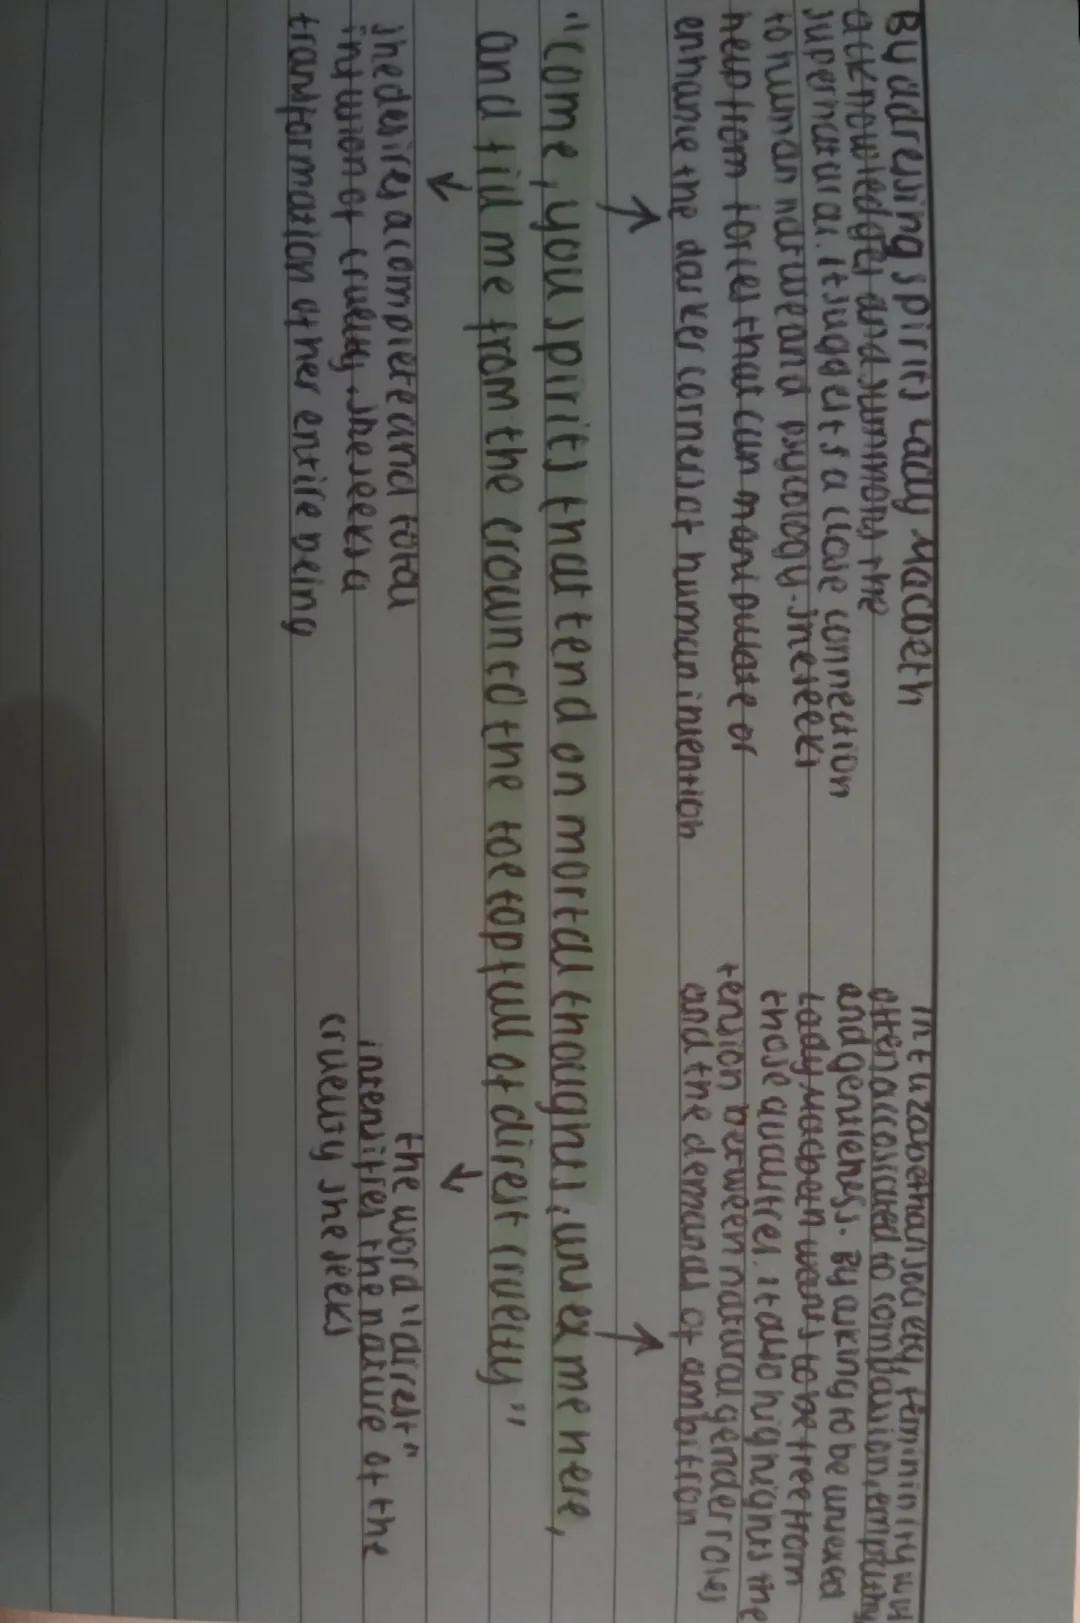 By adressing spirits Lady Macbeth
acknowledges and summons the
supernatural. It suggests a close connection
to human nature and psycology. she seeks
help from forces that can manipulate or
enhance the darker corners of human intention
In Elizabethan society, femininity was
often accosiated to compassion, empathy
and gentleness. By asking to be unsexed
Lady Macbeth wants to be free from
those qualities. It also highlights the
tension between natural gender roles
and the demands of ambition
"Come, you spirits that tend on mortal thoughts, unsex me here,
and fill me from the crown to the toe topfull of direst cruelty"
she desires a complete and total
infusion of cruelty. she seeks a
transformation of her entire being
the word "direst"
intensifies the nature of the
cruelty she seeks